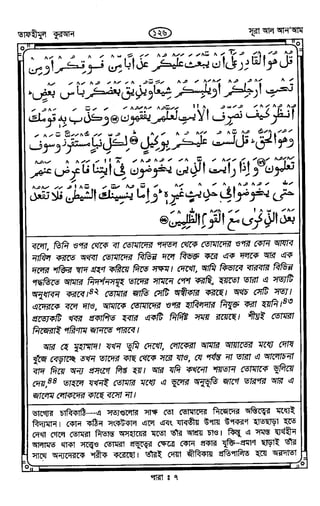 তাফহীমুল কুরআন
১২৬
সূরা আল আন'আম
قُلْ هُوَ الْقَادِرُ عَلَىٰ أَن يَبْعَثَ عَلَيْكُمْ عَذَابًا مِّن فَوْقِكُمْ أَوْ مِن
تَحْتِ أَرْجُلِكُمْ أَوْ يَلْبِسَكُمْ شِيَعًا وَيُذِيقَ بَعْضَكُم بَأْسَ بَعْضٍ
انظُرْ كَيْفَ نُصَرِّفُ الْآيَاتِ لَعَلَّهُمْ يَفْقَهُونَ ۝ وَكَذَّبَ بِهِ قَوْمُكَ
وَهُوَ الْحَقُّ قُل لَّسْتُ عَلَيْكُم بِوَكِيلٍ ۝ لِّكُلِّ نَبَإٍ مُّسْتَقَرٌّ وَسَوْفَ
تَعْلَمُونَ ۝ وَإِذَا رَأَيْتَ الَّذِينَ يَخُوضُونَ فِي آيَاتِنَا فَأَعْرِضْ عَنْهُمْ
حَتَّىٰ يَخُوضُوا فِي حَدِيثٍ غَيْرِهِ وَإِمَّا يُنسِيَنَّكَ الشَّيْطَانُ فَلَا تَقْعُدْ
بَعْدَ الذِّكْرَىٰ مَعَ الْقَوْمِ الظَّالِمِينَ ۝
বলো, তিনি ওপর থেকে বা তোমাদের পদতল থেকে তোমাদের ওপর কোন আযাব
নাযিল করতে অথবা তোমাদের বিভিন্ন দলে বিভক্ত করে এক দলকে আর এক
দলের শক্তির স্বাদ গ্রহণ করিয়ে দিতে সক্ষম। দেখো, আমি কিভাবে বারবার বিভিন্ন
পদ্ধতিতে আমার নিদর্শনসমূহ তাদের সামনে পেশ করছি, হয়তো তারা এ সত্যটি
অনুধাবন করবে।৪২ তোমার জাতি সেটি অস্বীকার করছে। অথচ সেটি সত্য।
এদেরকে বলে দাও, আমাকে তোমাদের ওপর হাবিলদার নিযুক্ত করা হয়নি।৪৩
প্রত্যেকটি খবর প্রকাশিত হবার একটি নির্দিষ্ট সময় রয়েছে। শীঘ্রই তোমরা
নিজেরাই পরিণাম জানতে পারবে।
আর হে মুহাম্মাদ! যখন তুমি দেখো, লোকেরা আমার আয়াতের মধ্যে দোষ
খুঁজে বেড়াচ্ছে তখন তাদের কাছ থেকে সরে যাও, যে পর্যন্ত না তারা এ আলোচনা
বাদ দিয়ে অন্য প্রসংগে লিপ্ত হয়। আর যদি কখনো শয়তান তোমাকে ভুলিয়ে
দেয়,৪৪ তাহলে যখনই তোমার মধ্যে এ ভুলের অনুভূতি জাগে তারপর আর এ
জালেম লোকদের কাছে বসো না।
ভাগ্যের চাবিকাঠি—এ সত্যগুলোর সাক্ষ তো তোমাদের নিজেদের অস্তিত্বের মধ্যেই
বিদ্যমান। কোন কঠিন সংকটকাল এলে এবং যাবতীয় উপায় উপকরণ হাতছাড়া হতে
দেখা গেলে তোমরা নিতান্ত অসহায়ের মতো তাঁর আশ্রয় চাও। কিন্তু এ সমস্ত দ্ব্যর্থহীন
আলামত থাকা সত্ত্বেও তোমরা প্রভুত্বের ক্ষেত্রে কোন প্রকার যুক্তি-প্রমাণ ছাড়াই তাঁর
সাথে অন্যদেরকে শরীক করেছো। তাঁরই দেয়া জীবিকায় প্রতিপালিত হয়ে অন্নদাতা
পারা : ৭